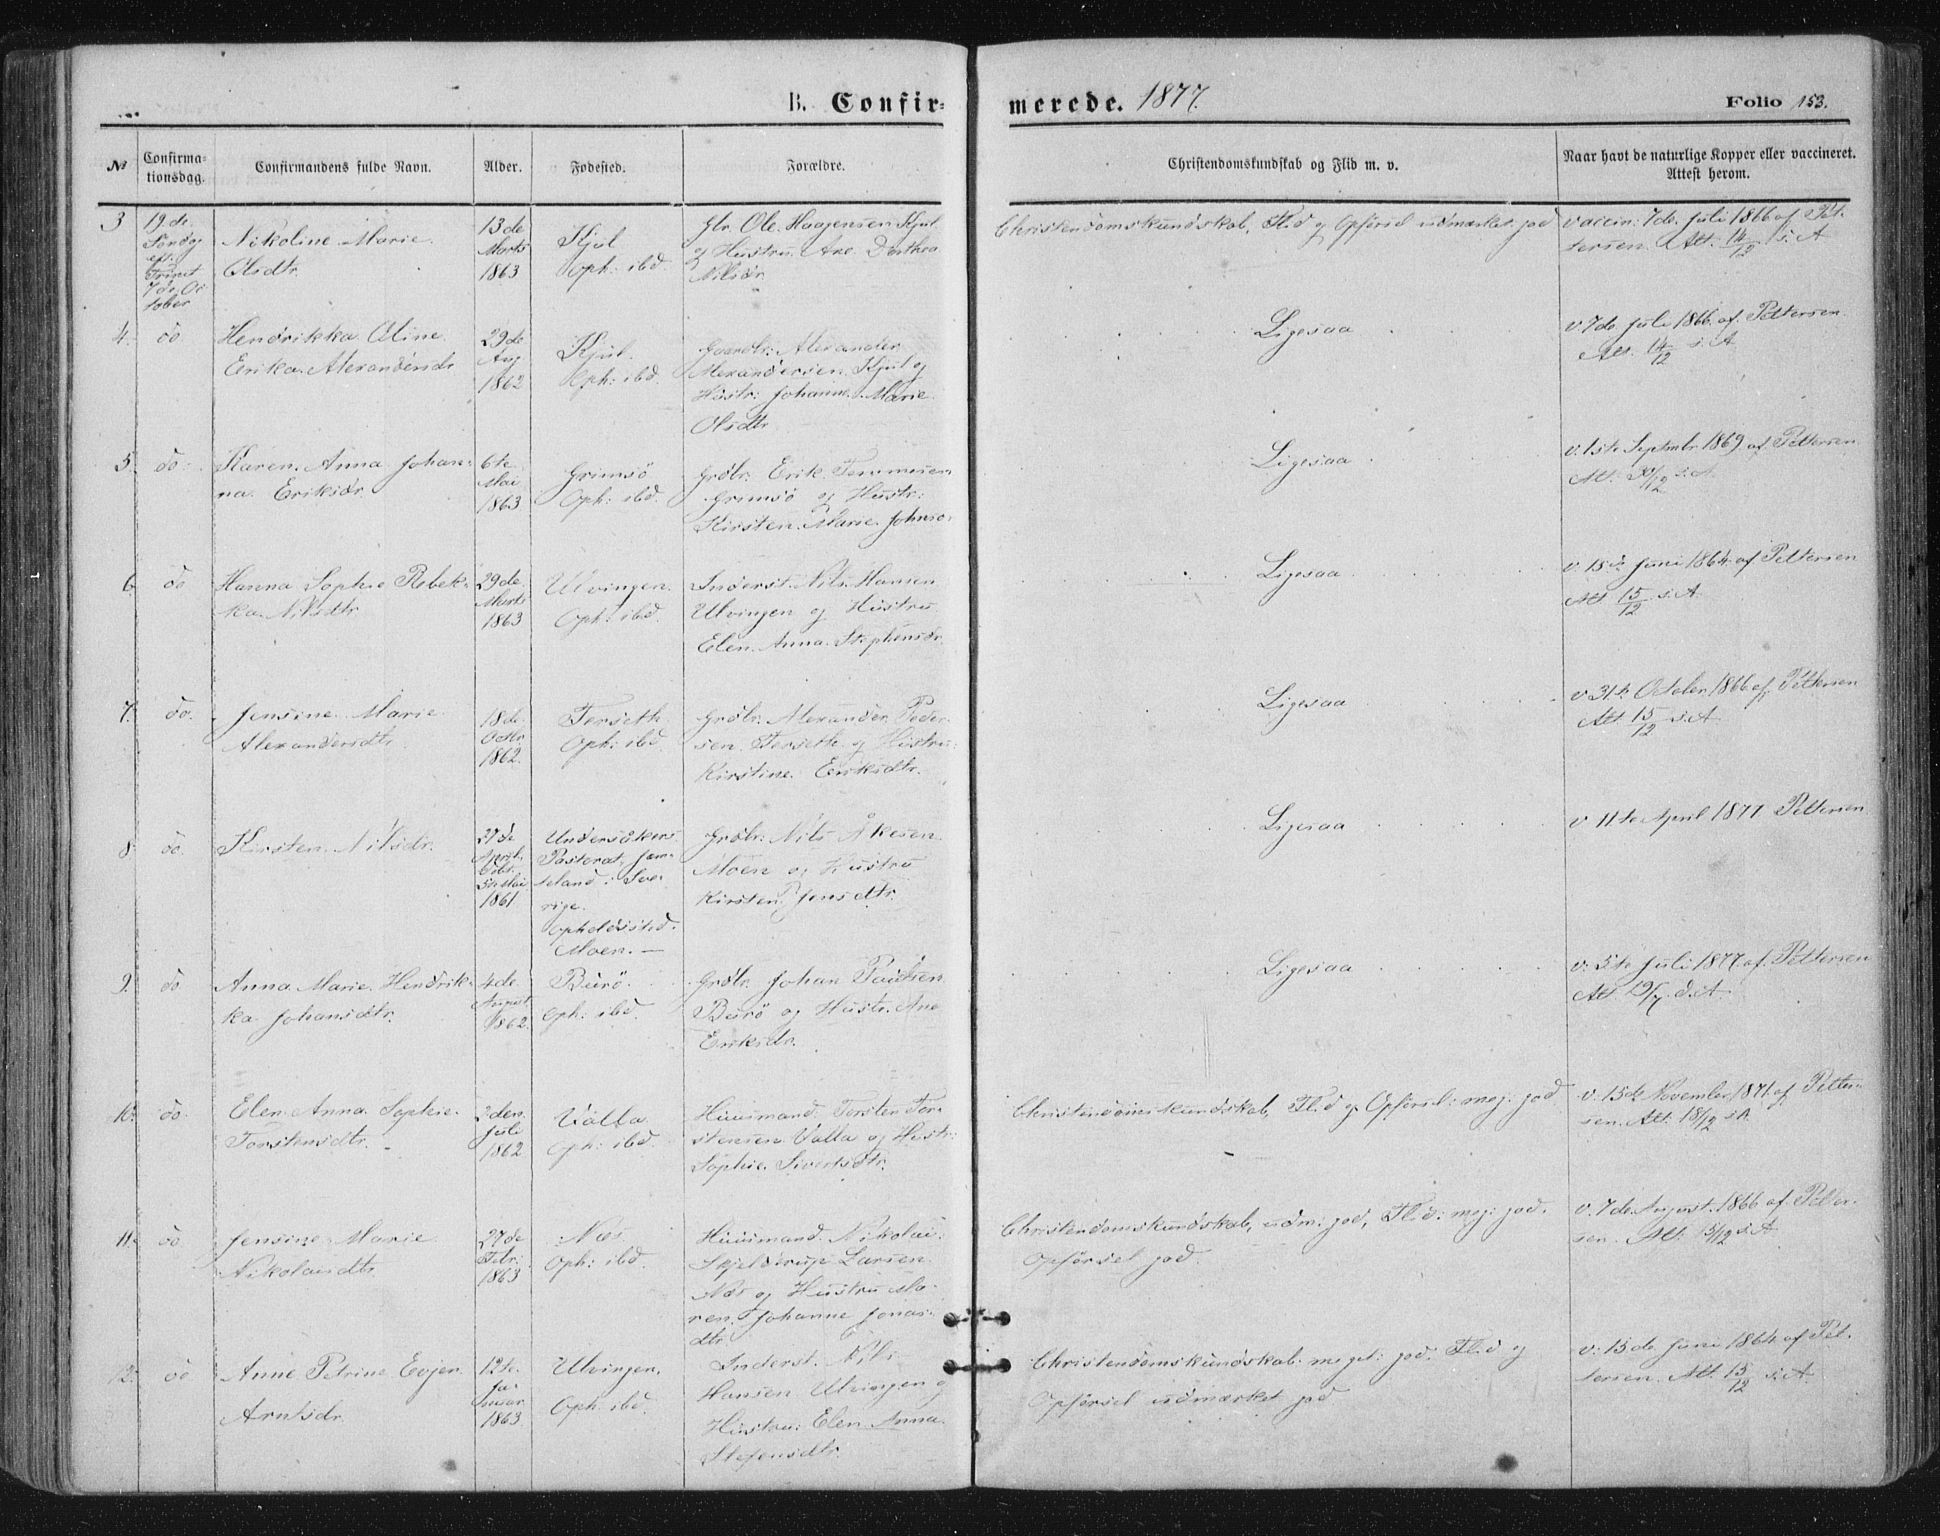 B. Confirmerede. 1877. Folio 153.
№ Confirmationsdag. Confirmandens fulde Navn. Alder. Fødested. Forældre. Christendomskundskab og Flid m. v. Naar havt de naturlige Kopper eller vaccineret. Attest herom.
3 19de Søndag eft. Trinit 7de October
Nikoline Marie
Olsdtr.
13de Marts 1863
Kjul
Oph: ibd.
Gbr. Ole Haagensen Kjul
og Hustru Ane Dorthea
Nilsdr
Christendomskundskab, Flid og Opførsel udmærket god
vaccin. 7de Juli 1866 af Pettersen. Att. 14/12 s. A
4. do
Hendrikka Oline
Erika Alexandersdr
29de Aug 1862
Kjul.
Oph: ibd.
Gaardbr: Alexander
Alexandersen Kjul og
Hustr: Johanne Marie
Olsdtr
Ligesaa
v. 7de Juli 1866 af Pettersen.
Att. 14/12 s. A
5. do.
Karen Anna Johanna
Eriksdr
6te Mai 1863
Grimsø
Oph: ibd.
Grdbr. Erik
Grimsø og Hustr:
Kirsten Marie
Ligesaa
v. 1ste Septmbr 1869 af Pettersen
Att: 30/12 s. A.
6 do
Hanna Sophie Rebekka
Nilsdtr
29de Marts 1863
Ulvingen.
Oph: ibd.
Inderst. Nils Hansen
Ulvingen og Hustru
Elen Anna Stephensdr.
Ligesaa
v. 15de Juni 1864 af Pettersen
Att 15/12 s. A.
7. do.
Jensine Marie
Alexandersdtr
18de Octbr 1862.
Forseth
Oph: ibd.
Grdbr. Alexander Pedersen
Forseth og Hustru:
Kirstine Eriksdtr.
Ligesaa
v 31te October 1866 af Pettersen
Att 15/12 s. A.
8 do.
Kirsten Nilsdr.
27de April. Døbt 5te Mai 1861
Undersåkers
Pastorat, Jemteland
i Sverige.
Opholdssted.
Moen.
Grdbr. Nils Åkesen
Moen og Hustru
Kirsten Jensdtr.
Ligesaa
v 11te April 1877 Pettersen
9. do
Anna Marie Hendrikka
Johansdtr.
4de August 1862.
Burø
Oph: ibd.
Grdbr. Johan Paulsen
Burø og Hustr. Ane
Eriksdr.
Ligesaa
v: 5te Juli 1877 af Pettersen
Att. 19/7 d. A.
10. do.
Elen Anna Sophie
Torstensdtr.
2den Juli 1862
Valla
Oph: ibd.
Huusmand Torsten Torstensen
Valla og Hustr:
Sophie Sivertsdtr.
Christendomskundskab, Flid og Opførsel: meg: god
v. 15de November 1871 af Pettersen.
Att. 18/12 s. A.
11. do
Jensine Marie
Nikolaisdtr
27de Febr. 1863
Næs
Oph: ibd.
Huusmand Nikolai
Skjelderup Larsen
Næs og Hustru Maren
Johanne Jonasdtr
Christendomskundskab, udm: god, Flid: meg: god,
Opførsel god.
v. 7de August. 1866 af Pettersen.
Att. 15/12 s. A
12. do
Anne Petrine Evjen
Arntsdr.
12te Januar 1863
Ulvingen.
Oph ibd.
Inderst. Nils
Hansen Ulvingen og
Hustru: Elen Anna
Stefensdtr.
Christendomskundskab meget god Flid og
Opførsel udmærket god
v: 15de Juni 1864 af Pettersen.
Att. 15/12 s. A.